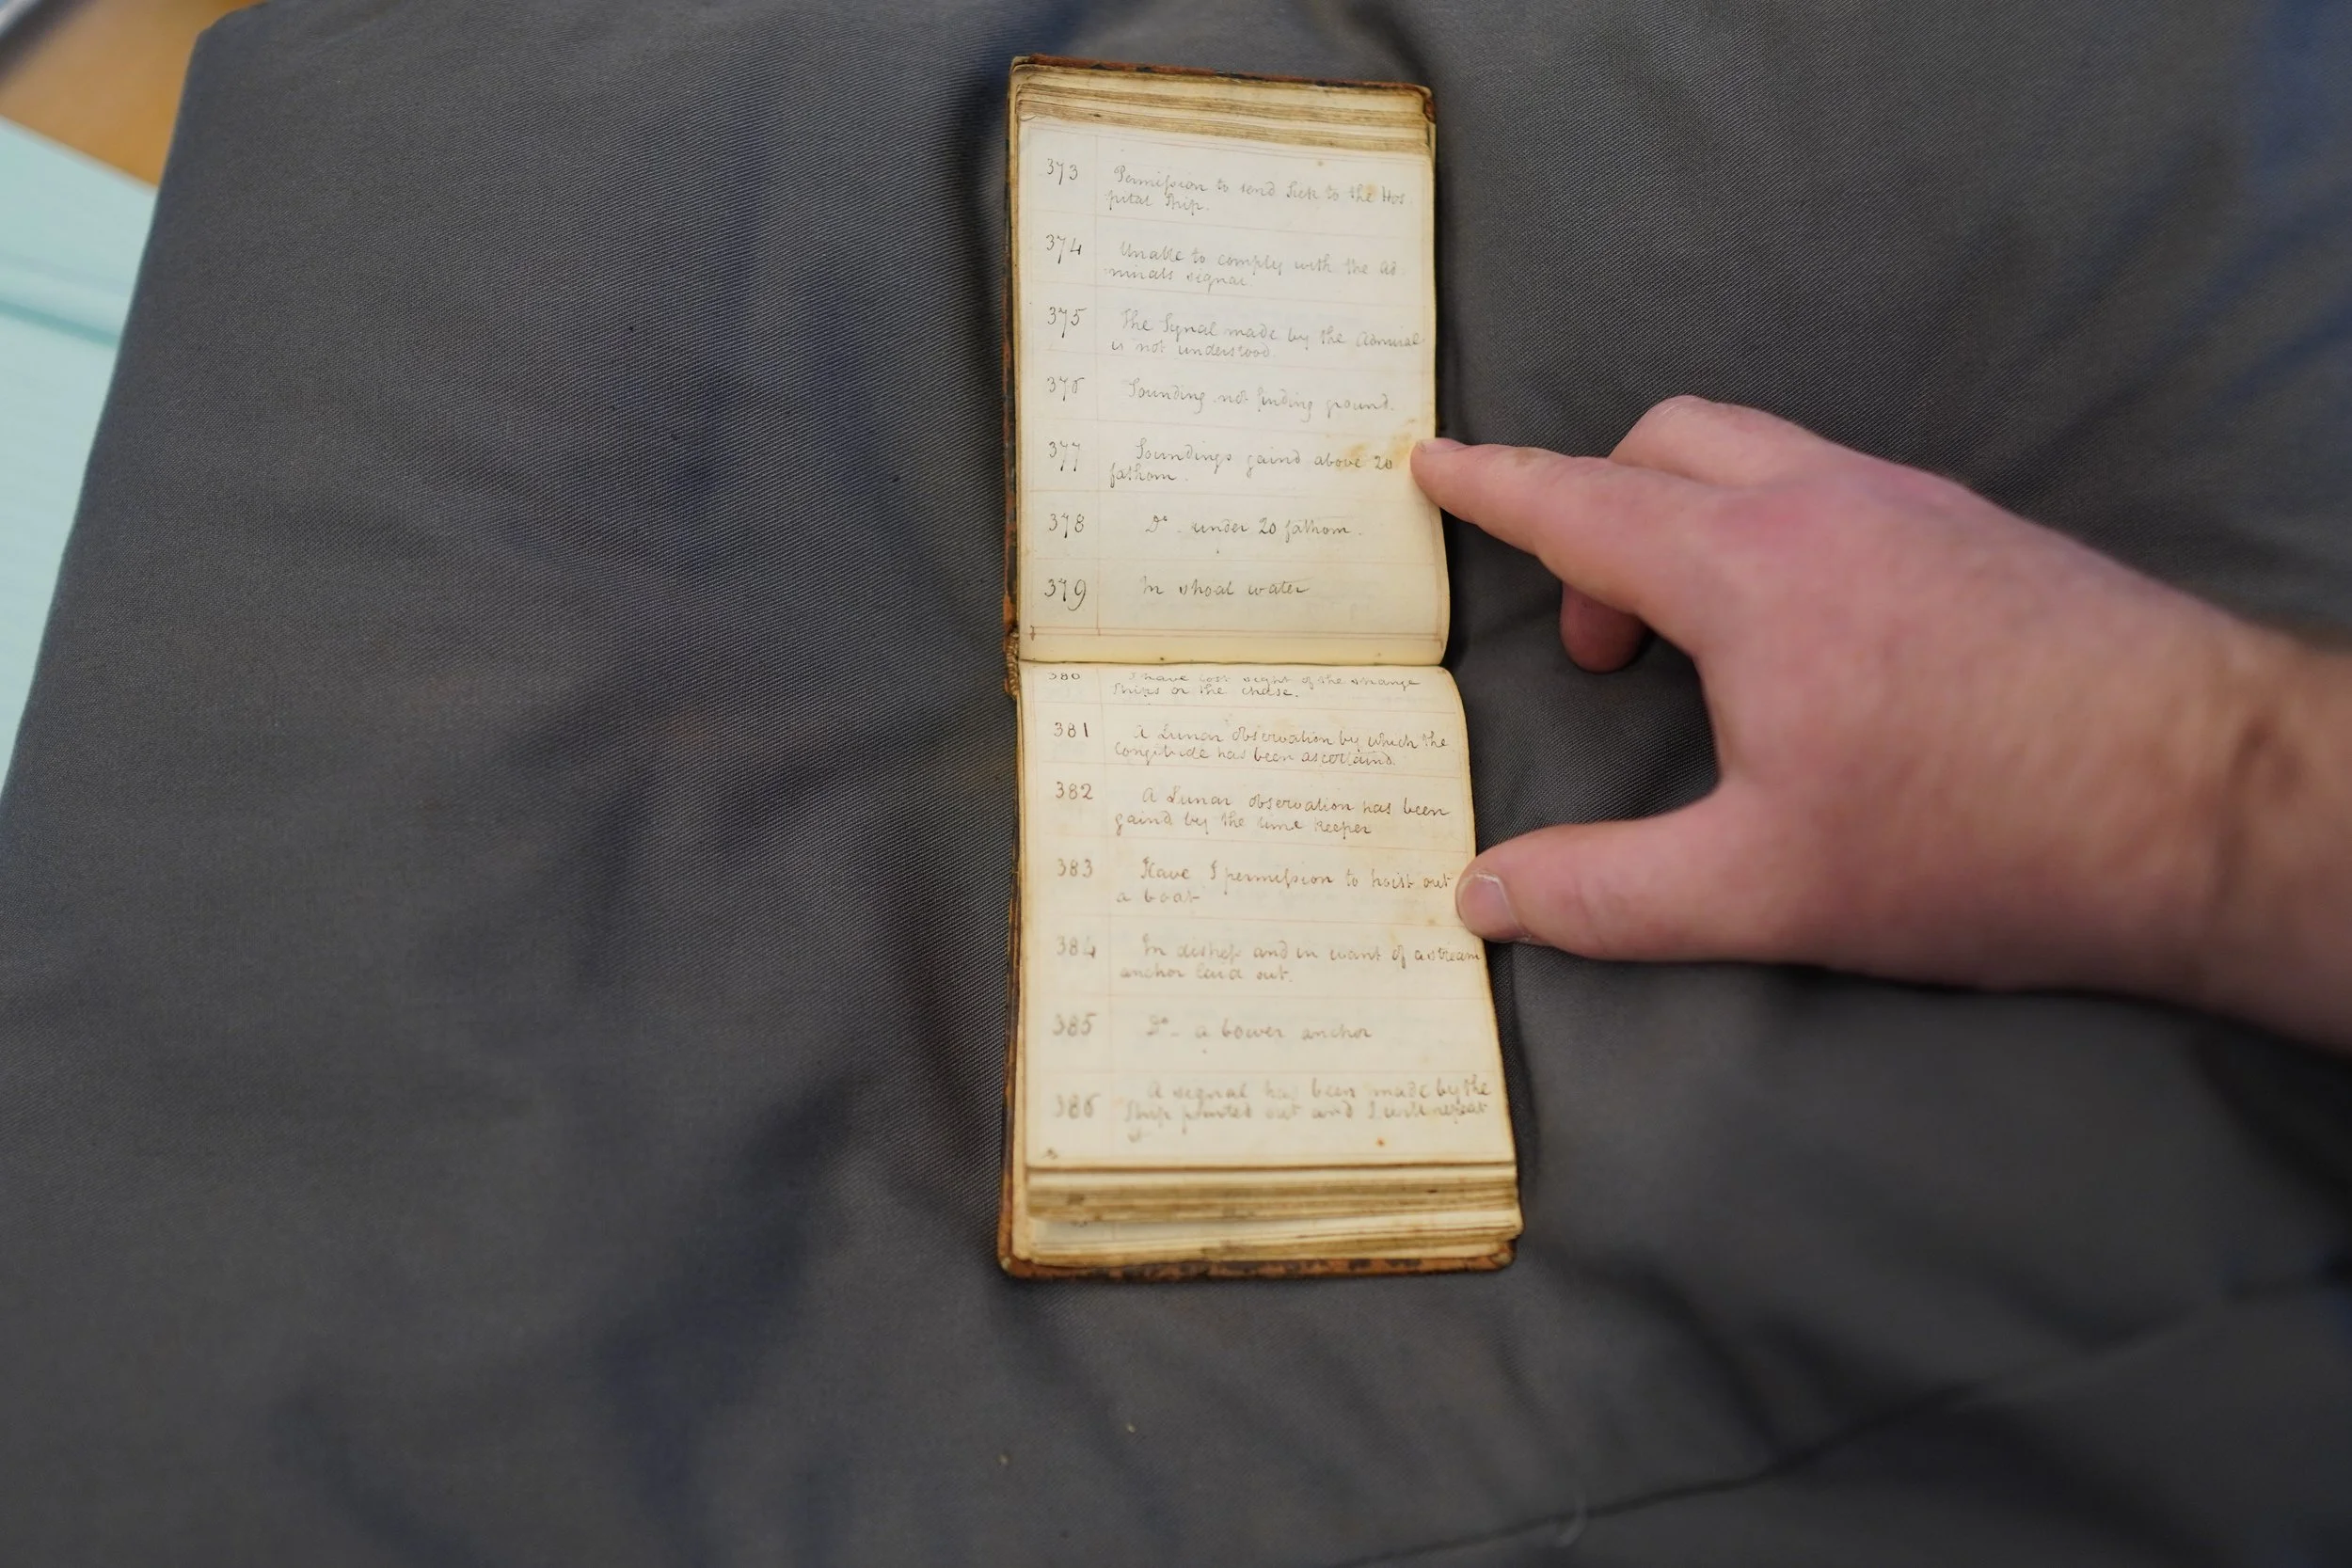 373 Permission to send Sick to the Hos
pital Ship.
374 Unable to comply with the Ad
mirals signal
375 The Signal made by the Admiral
is not understood.
376 Sounding not finding ground.
377 Soundings gaind above 20
fathom.
378 Do. under 20 fathom.
379 In shoal water
380 I have lost sight of the strange
Ships or the chase.
381 A Lunar observation by which the
Longitude has been ascertaind.
382 A Lunar observation has been
gaind by the time keeper
383 Have I permission to hoist out
a boat
384 In distress and in want of a stream
anchor laid out.
385 Do. a bower anchor
386 A signal has been made by the
Ship pointed out and I will repeat
it